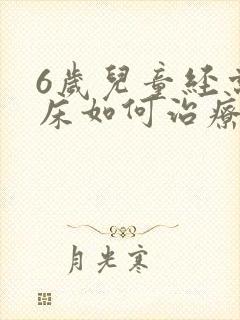 6歲兒童經
床如何治療
月光寒